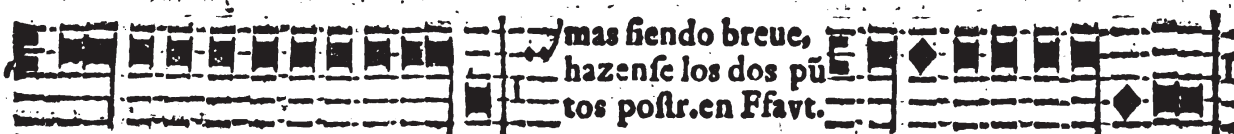 mas ſiendo breue,
hazenſe los dos pũ
tos poſtr.en Ffavt.